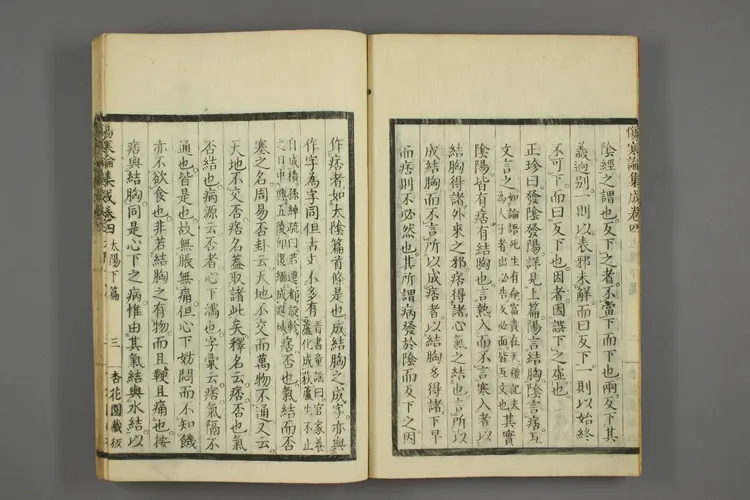 傷寒論集成卷四
陰經之謂也。反下之者。不當下而下也。兩反下其
義逈別。一則以表邪未解而曰反下。一則以始終
不可下。而曰反下也。因者。因誤下之虛也。
正珍曰。發陰發陽。詳見上篇。陽言結胸。陰言痞。互
文言之。
陰陽。皆有痞有結胸也。言熱入而不言寒入者。以
結胸得諸外來之邪。痞得諸心氣之結也。言所以
成結胸而不言所以成痞者。以結胸多得諸下早。
而痞則不必然也。其所謂病發於陰而反下之。因
作痞者。如太陰篇首條是也。成結胸之成字。亦與
作字爲字同。但古文不多有。
痞否也。氣結而否
塞之名。周易否卦云。天地不交而萬物不通。又云。
天地不交否。痞名蓋取諸此矣。釋名云。痞否也。氣
否結也。病源云。否者心下滿也。字彙云。痞氣隔不
通也。皆是也。故無脹無痛。但心下妨悶而不知饑。
亦不欲食也。非若結胸之有物而且鞕且痛也。按
痞與結胸。同是心下之病。惟由其氣結與水結。以
傷寒論集成卷四
太陽下篇
三
杏花園藏板